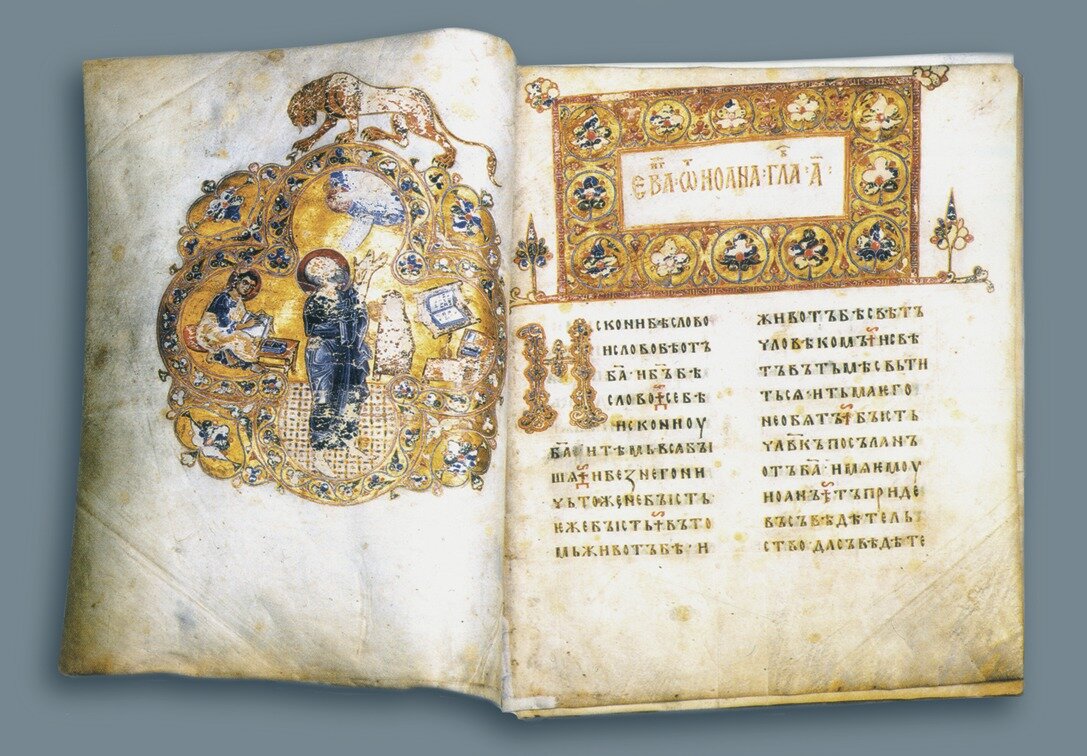 ЕВА҃Г·Ѿ ИОАНА·ГЛАВ·А҃·
ИСКОНИ БѢ СЛОВО
И СЛОВО БѢ ОТЪ
БА҃ И БЪ҃ БѢ
СЛОВО СЕ БѢ
ИСКОНИ ОУ
БА҃ И ТѢМЬ ВСА БЫ
ША И БЕЗ НЕГО НИ
ЧЬТОЖЕ НЕ БЫСТЬ
ѤЖЕ БЫСТЬ ВЪ ТО
МЬ ЖИВОТЪ БѢ И
ЖИВОТЪ БѢ СВѢТЪ
ЧЛОВѢКОМЪ И СВѢ
ТЪ ВЪ ТЬМѢ СВЬТИ
ТЬСѦ И ТЬМА ѤГО
НЕ ОБѦТЪ БЫСТЬ
ЧЛ҃ВКЪ ПОСЪЛАНЪ
ОТЪ БА҃ ИМѦ ѤМОУ
ИОАНЪ ТЪ ПРИДЕ
ВЪ СЪВѢДѢТЕЛЬ
СТВО ДА СЪВѢДѢТЕ